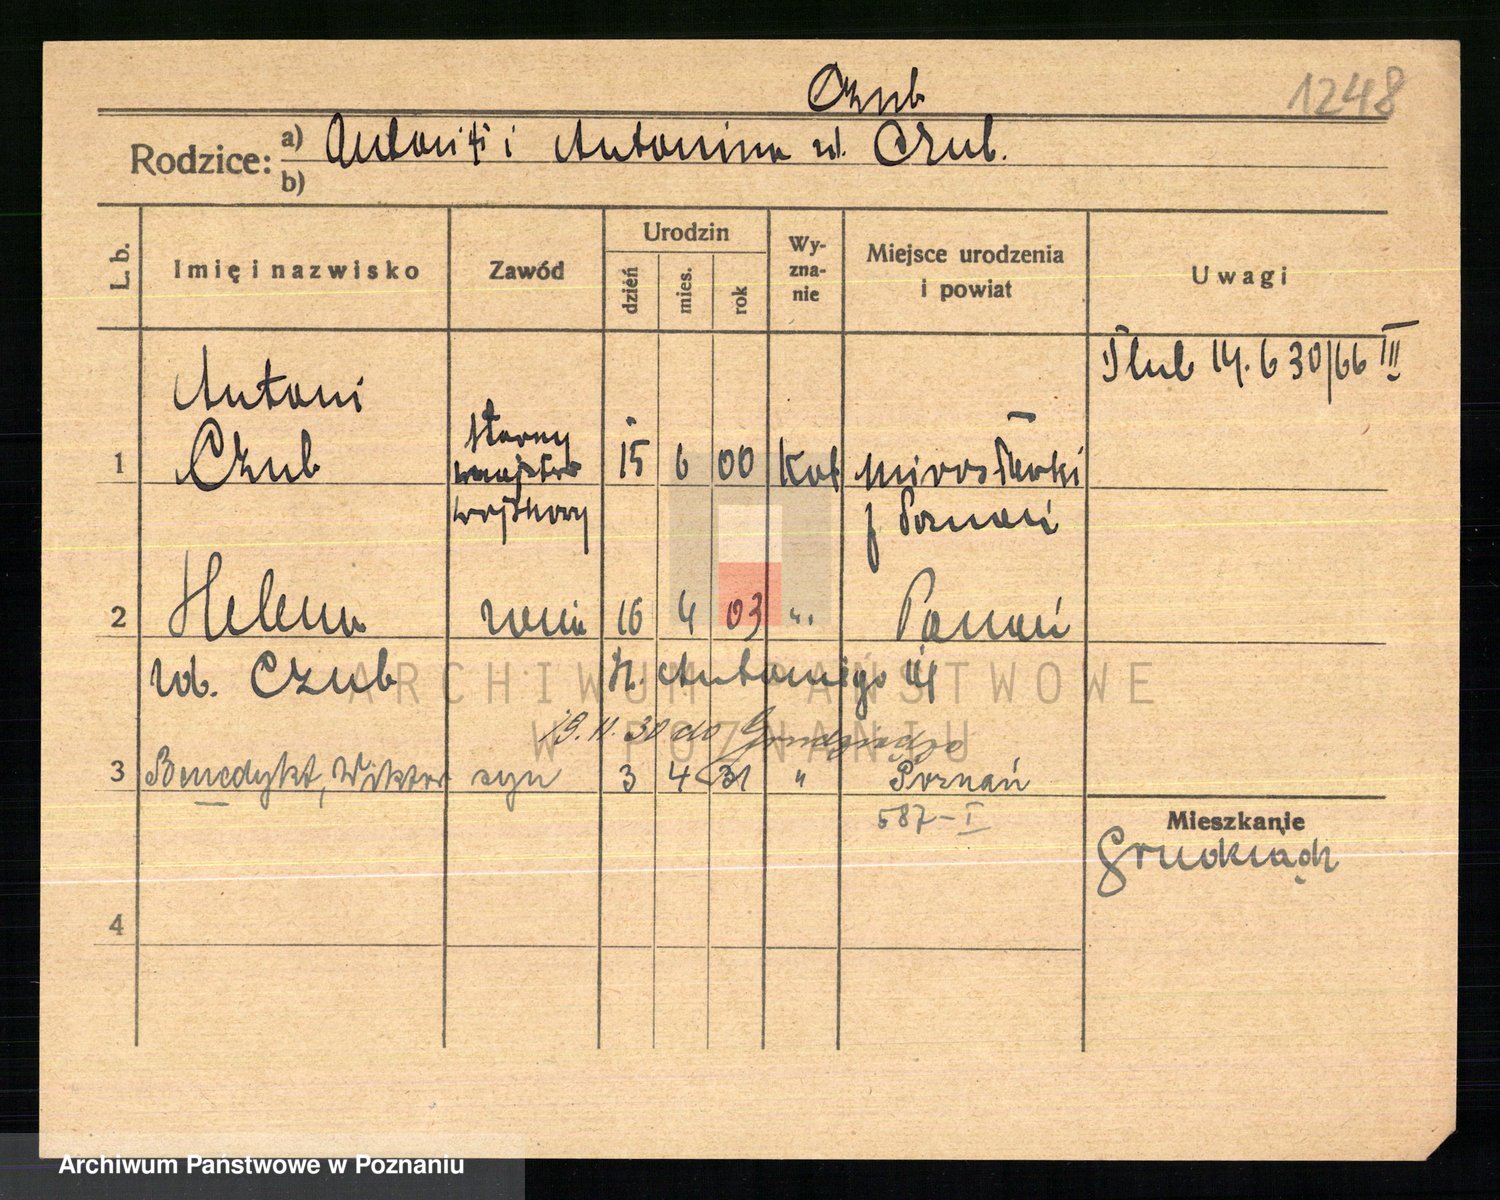 Czub
1248
Rodzice: a) Antoni i Antonina ur. Czub.
b)
L. b.
Imię i nazwisko
Zawód
Urodzin
dzień
mies.
rok
Wy-
zna-
nie
Miejsce urodzenia
i powiat
Uwagi
Ślub 14. 6 30/66 III
1
Antoni
Czub
starszy
majster
wojskowy
15 6 00 kat Mirosławki
p Poznań
2 Helena żona 16 4 03 „ Poznań
ur. Czub c. Antoniego
19.11.30 do Grudziądza
3 Benedykt, Wiktor syn 3 4 31 " Poznań
587-I
Mieszkanie
Grudziądz
4
ARCHIWUM PAŃSTWOWE
W POZNANIU
Archiwum Państwowe w Poznaniu